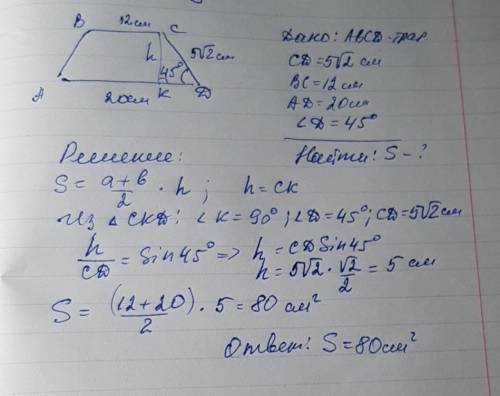 B 12см C
h 5√2 см
45°
A 20см K D
Дано: ABCD-трап.
CD=5√2 см
BC=12см
AD=20см
∠D=45°
Найти: S-?
Решение:
S = (a+b)/2 · h ; h=CK
Из △CKD: ∠K=90°; ∠D=45°; CD=5√2 см
h/CD = Sin45° => h = CD Sin45°
h = 5√2 · √2/2 = 5 см
S = (12+20)/2 · 5 = 80 см²
Ответ: S=80см²